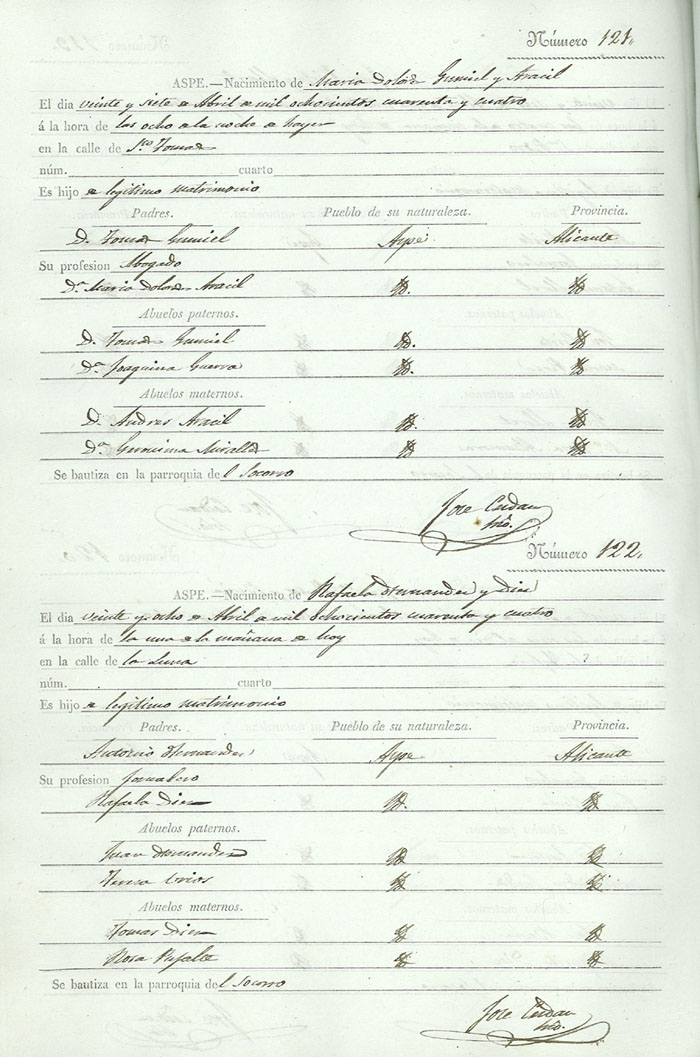 Número 121.
ASPE.—Nacimiento de Maria Dolores Gumiel y Aracil
El dia veinte y siete de Abril de mil ochocientos cuarenta y cuatro
á la hora de las ocho de la noche de hayer
en la calle de Sto Tomas
núm. cuarto
Es hijo de legitimo matrimonio
Padres. Pueblo de su naturaleza. Provincia.
D. Tomas Gumiel Aspe Alicante
Su profesion Abogado
Da Maria Dolores Aracil Yd. Yd.
Abuelos paternos.
D. Tomas Gumiel Yd. Yd.
Da Joaquina Guerra Yd. Yd.
Abuelos maternos.
D. Andres Aracil Yd. Yd.
Da Geronima Miralles Yd. Yd.
Se bautiza en la parroquia del Socorro
Jose
Número 122.
ASPE.—Nacimiento de Rafaela Hernandes y Dies
El dia veinte y ocho de Abril de mil ochocientos cuarenta y cuatro
á la hora de la una de la mañana de hoy
en la calle de la Luna
núm. cuarto
Es hijo de legitimo matrimonio
Padres. Pueblo de su naturaleza. Provincia.
Antonio Hernandes Aspe Alicante
Su profesion Jornalero
Rafaela Dies Yd. Yd.
Abuelos paternos.
Juan Hernandes Yd. Yd.
Teresa Urios Yd. Yd.
Abuelos maternos.
Tomas Dies Yd. Yd.
Rosa Yd. Yd.
Se bautiza en la parroquia del Socorro
Jose